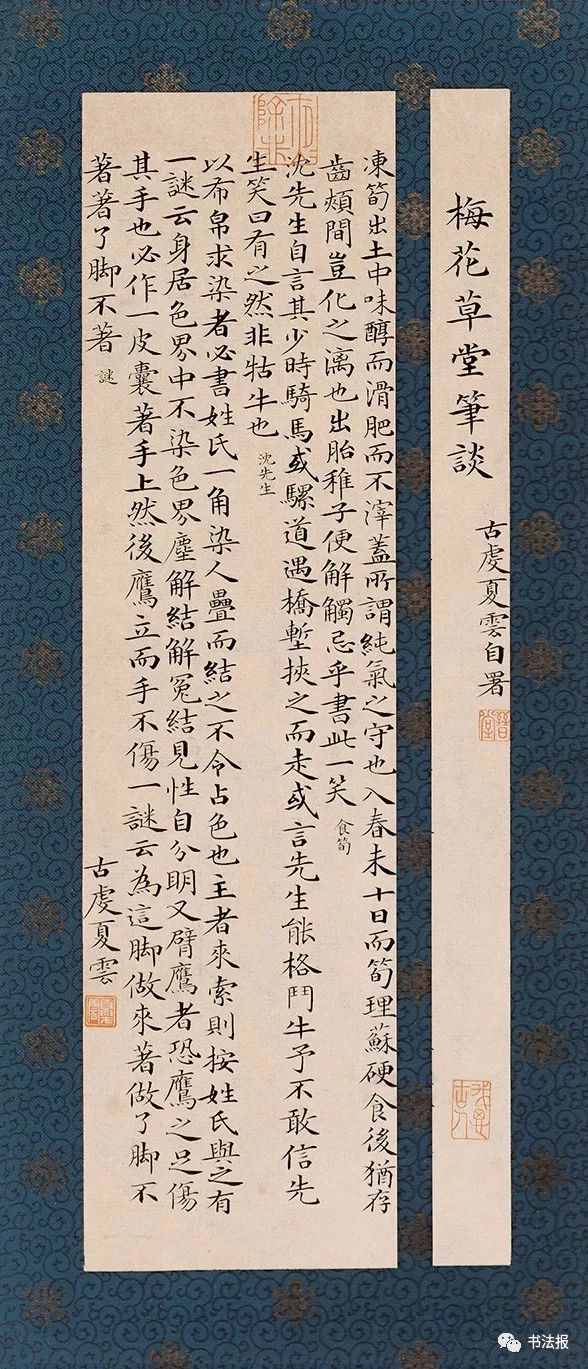 梅花草堂筆談
古虔夏雲自署
凍筍出土中味醇而滑肥而不滓蓋所謂純氣之守也入春未十日而筍理蘇硬食後猶存
齒頰間豈化之漓也出胎稚子便解觸忌乎書此一笑 食筍
沈先生自言其少時騎馬或騾道遇橋塹挾之而走或言先生能格鬥牛予不敢信先
生笑曰有之然非牯牛也 沈先生
以布帛求染者必書姓氏一角染人疊而結之不令占色也主者來索則按姓氏與之有
一謎云身居色界中不染色界塵解結解冤結見性自分明又臂鷹者恐鷹之足傷
其手也必作一皮囊著手上然後鷹立而手不傷一謎云為這脚做來著做了脚不
著著了脚不著 謎
古虔夏雲
书法报